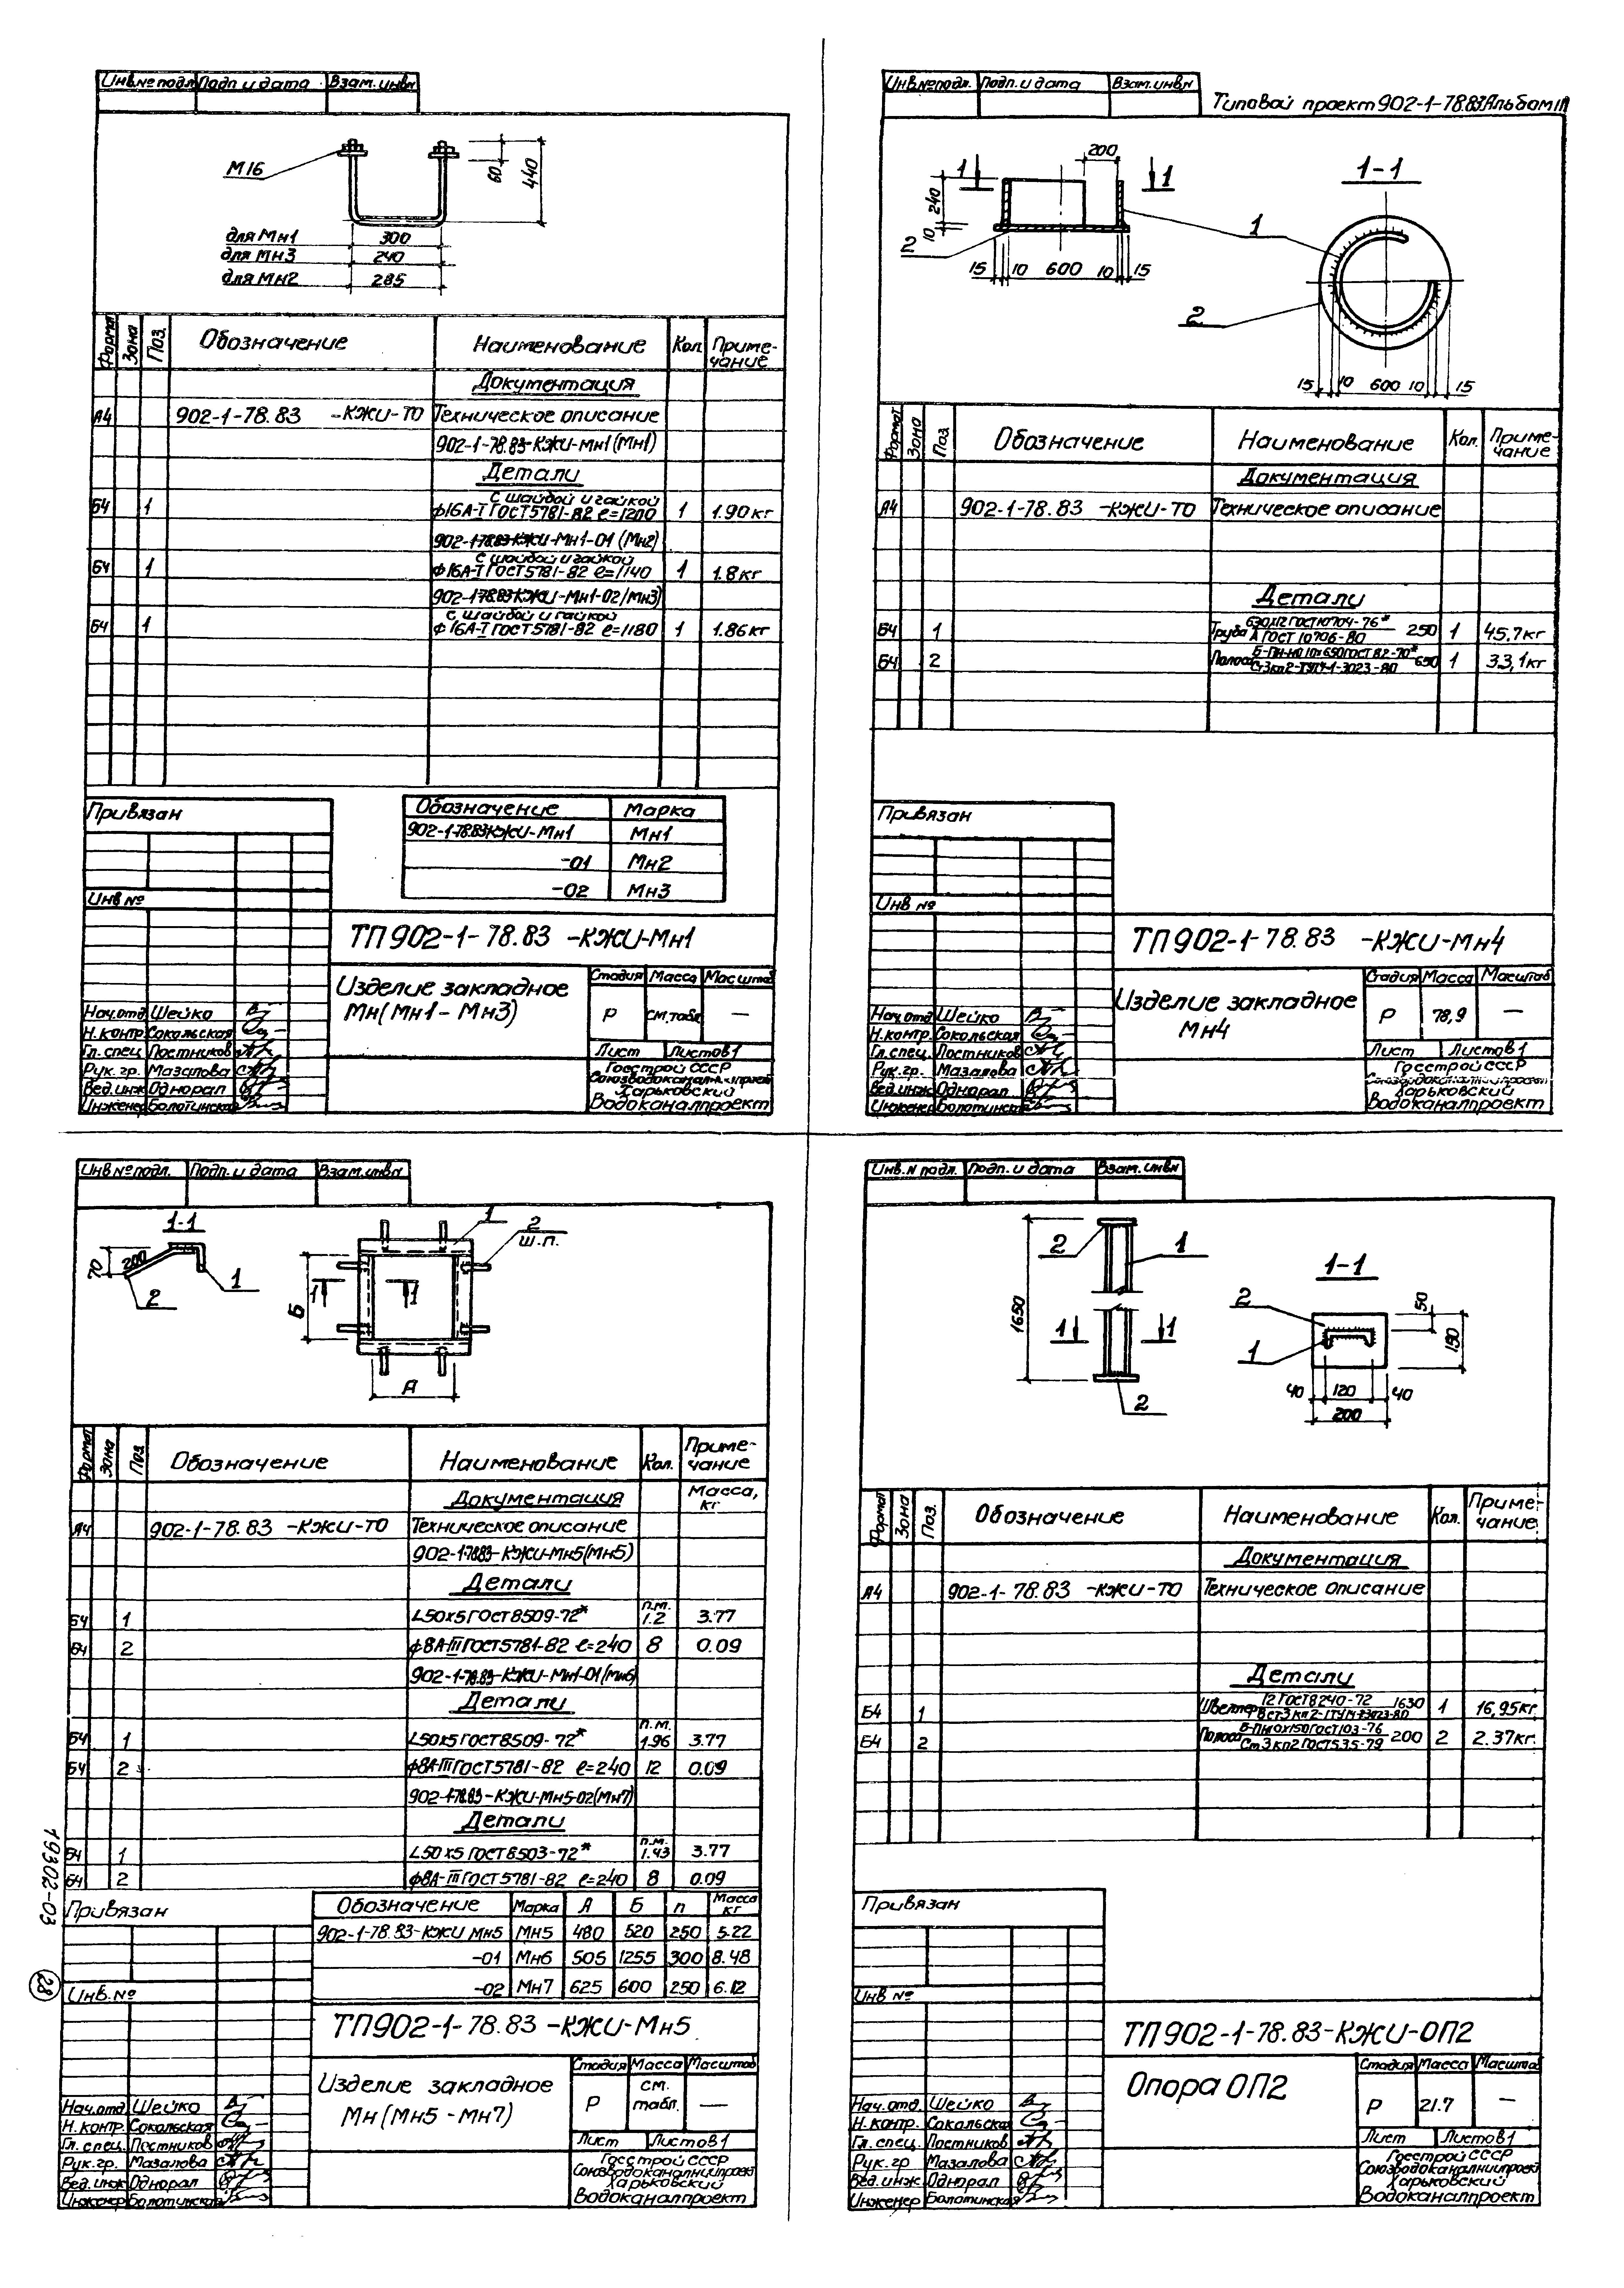 Инв.№ подл. Подп. и дата Взам. инв.№
М16
60
440
для Мн1 300
для Мн3 240
для Мн2 285
Формат Зона Поз. Обозначение Наименование Кол. Приме-
чание
Документация
А4 902-1-78.83 -КЖИ-ТО Техническое описание
902-1-78.83-КЖИ-Мн1 (Мн1)
Детали
с шайбой и гайкой
Б4 1 ф16А-I ГОСТ 5781-82 е=1200 1 1.90 кг
902-1-78.83 КЖИ-Мн1-01 (Мн2)
с шайбой и гайкой
Б4 1 ф16А-I ГОСТ 5781-82 е=1140 1 1.8 кг
902-1-78.83 КЖИ-Мн1-02 (Мн3)
с шайбой и гайкой
Б4 1 ф16А-I ГОСТ 5781-82 е=1180 1 1.86 кг
Привязан
Инв №
Обозначение Марка
902-1-78.83 КЖИ-Мн1 Мн1
-01 Мн2
-02 Мн3
ТП 902-1-78.83 -КЖИ-Мн1
Изделие закладное
Мн (Мн1 - Мн3)
Стадия Масса Масштаб
Р см. табл —
Лист Листов 1
Нач. отд. Шейко
Н. контр. Сокольская
Гл. спец. Постников
Рук. гр. Мазалова
Вед. инж. Однорал
Инженер Болотинская
Госстрой СССР
Союзводоканалниипроект
Харьковский
Водоканалпроект
Инв.№ подл. Подп. и дата Взам. инв.№
Типовой проект 902-1-78.83 Альбом III
1 200 1
240
10
2
15 10 600 10 15
1-1
1
2
15 10 600 10 15
Формат Зона Поз. Обозначение Наименование Кол. Приме-
чание
Документация
А4 902-1-78.83 -КЖИ-ТО Техническое описание
Детали
Б4 1 Труба 630х12 ГОСТ 10704-76* 250 1 45.7 кг
А ГОСТ 10706-80
Б4 2 Полоса Б-ПН-НО 10х650 ГОСТ 82-70* 650 1 33,1 кг
Ст3кп2-ТУ14-1-3023-80
Привязан
Инв №
ТП 902-1-78.83 -КЖИ-Мн4
Изделие закладное
Мн4
Стадия Масса Масштаб
Р 78,9 —
Лист Листов 1
Нач. отд. Шейко
Н. контр. Сокольская
Гл. спец. Постников
Рук. гр. Мазалова
Вед. инж. Однорал
Инженер Болотинская
Госстрой СССР
Союзводоканалниипроект
Харьковский
Водоканалпроект
Инв № подл. Подп. и дата Взам. инв.№
1-1
70
200
1
2
1
2
ш.п.
Б
1 1
А
Формат Зона Поз. Обозначение Наименование Кол. Приме-
чание
Документация Масса,
кг
А4 902-1-78.83 -КЖИ-ТО Техническое описание
902-1-78.83-КЖИ-Мн5 (Мн5)
Детали
Б4 1 L50х5 ГОСТ 8509-72* п.м. 1.2 3.77
Б4 2 ф8А-III ГОСТ 5781-82 е=240 8 0.09
902-1-78.83-КЖИ-Мн1-01 (Мн6)
Детали
Б4 1 L50х5 ГОСТ 8509-72* п.м. 1.96 3.77
Б4 2 ф8А-III ГОСТ 5781-82 е=240 12 0.09
902-1-78.83-КЖИ-Мн5-02 (Мн7)
Детали
Б4 1 L50х5 ГОСТ 8503-72* п.м. 1.43 3.77
Б4 2 ф8А-III ГОСТ 5781-82 е=240 8 0.09
19302-03
28
Привязан
Инв. №
Обозначение Марка А Б п Масса
кг
902-1-78.83-КЖИ Мн5 Мн5 480 520 250 5.22
-01 Мн6 505 1255 300 8.48
-02 Мн7 625 600 250 6.12
ТП 902-1-78.83 -КЖИ-Мн5
Изделие закладное
Мн (Мн5 - Мн7)
Стадия Масса Масштаб
Р см. табл. —
Лист Листов 1
Нач. отд. Шейко
Н. контр. Сокольская
Гл. спец. Постников
Рук. гр. Мазалова
Вед. инж. Однорал
Инженер Болотинская
Госстрой СССР
Союзводоканалниипроект
Харьковский
Водоканалпроект
Инв. № подл. Подп. и дата Взам. инв№
1650
2 1
1 1
2
1-1
2
1
50
150
40 120 40
200
Формат Зона Поз. Обозначение Наименование Кол. Приме-
чание
Документация
А4 902-1-78.83 -КЖИ-ТО Техническое описание
Детали
Б4 1 Швеллер 12 ГОСТ 8240-72 1630 1 16,95 кг
Б4 2 Полоса Б-ПН10х150 ГОСТ 103-76 200 2 2.37 кг.
Ст3кп2 ГОСТ 535-79
Привязан
Инв №
ТП 902-1-78.83-КЖИ-ОП2
Опора ОП2
Стадия Масса Масштаб
Р 21.7 —
Лист Листов 1
Нач. отд. Шейко
Н. контр. Сокольская
Гл. спец. Постников
Рук. гр Мазалова
Вед. инж. Однорал
Инженер Болотинская
Госстрой СССР
Союзводоканалниипроект
Харьковский
Водоканалпроект